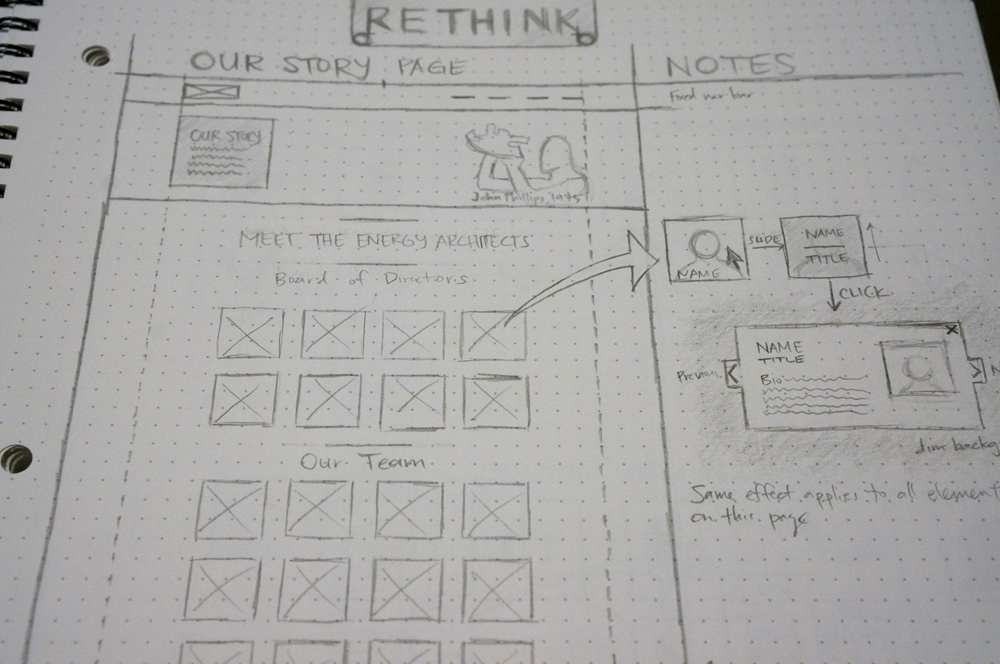 RETHINK
OUR STORY PAGE
NOTES
Fixed nav bar
OUR STORY
John Phillips, 1975
MEET THE ENERGY ARCHITECTS
Board of Directors
NAME
SLIDE
NAME
TITLE
CLICK
NAME
TITLE
Bio
X
Our Team
Same effect applies to all element
on this page